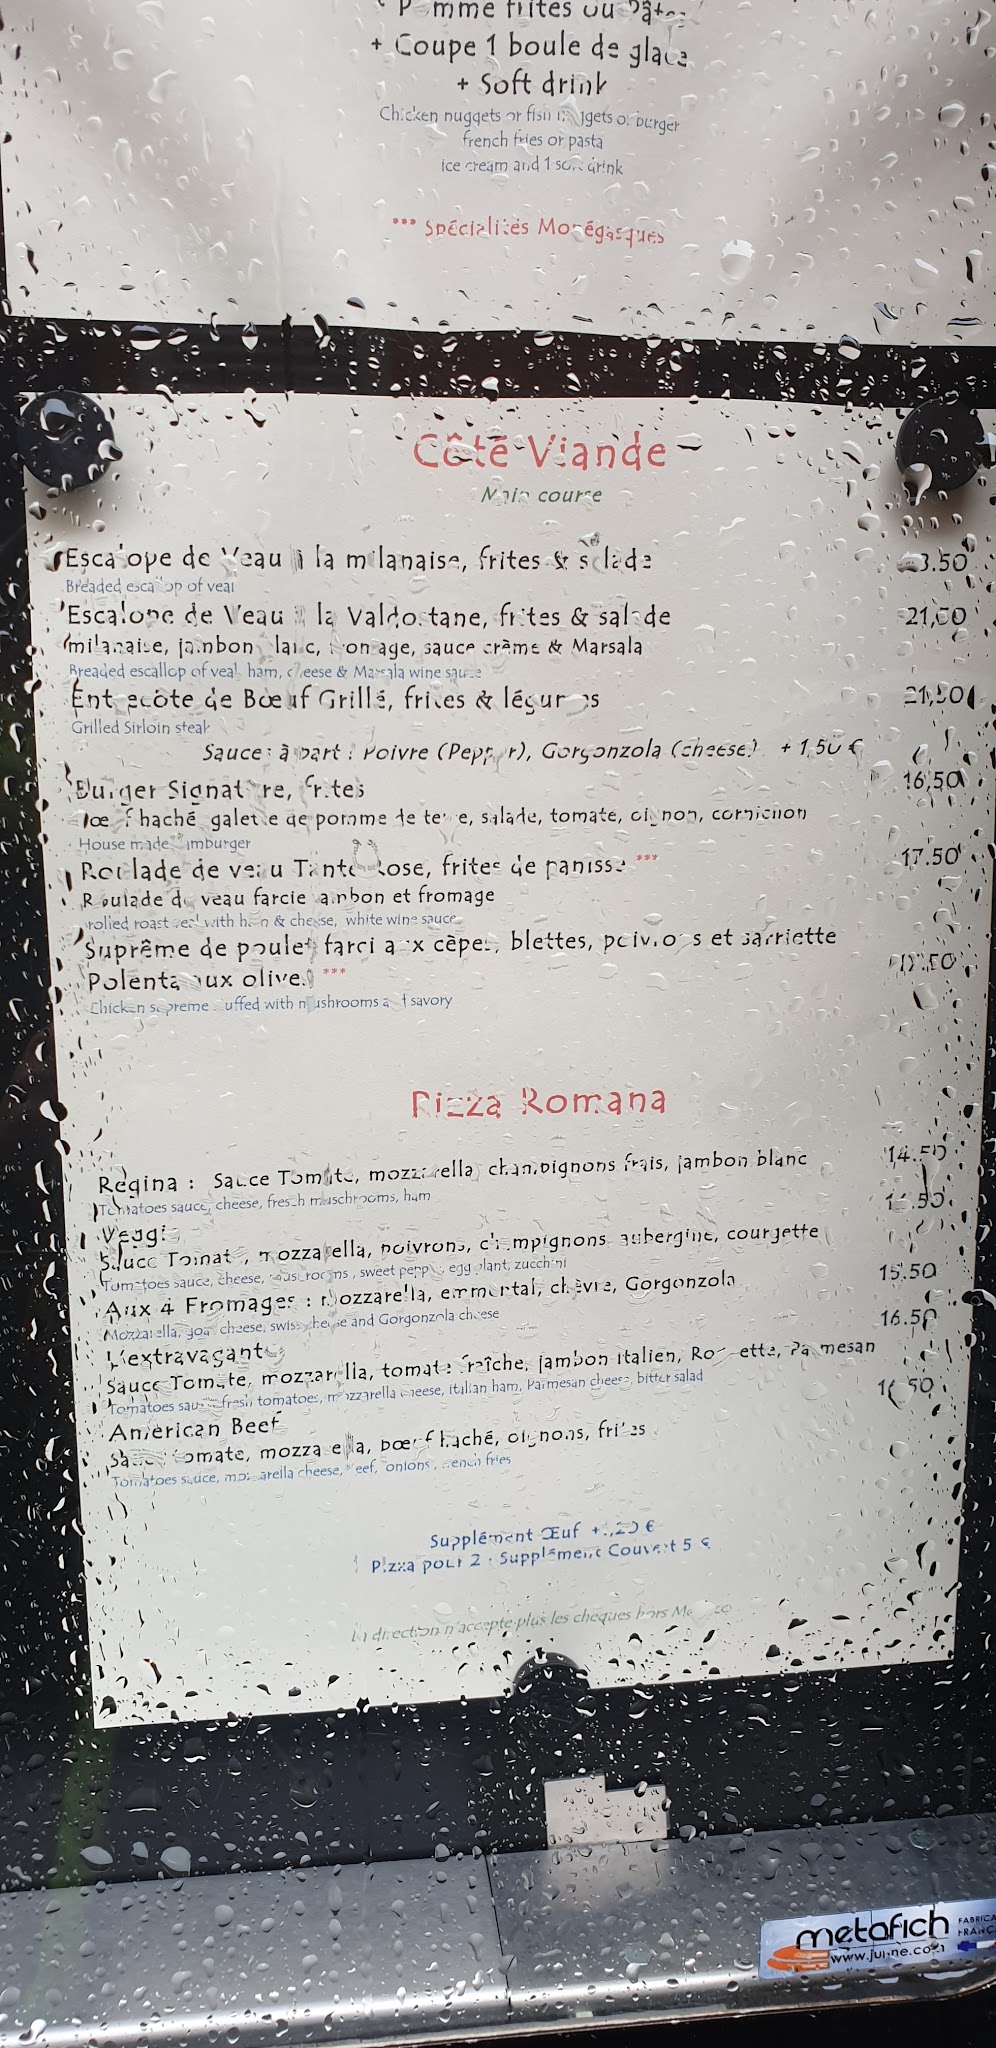 Pomme frites ou Pâtes
+ Coupe 1 boule de glace
+ Soft drink
Chicken nuggets or fish nuggets or burger
french fries or pasta
ice cream and 1 soft drink
*** Spécialités Monégasques
Côté Viande
Main course
Escalope de Veau à la milanaise, frites & salade
Breaded escallop of veal
Escalope de Veau à la Valdostane, frites & salade 21,50
milanaise, jambon blanc, fromage, sauce crème & Marsala
Breaded escallop of veal, ham, cheese & Marsala wine sauce
Entrecôte de Bœuf Grillé, frites & légumes 21,50
Grilled Sirloin steak
Sauces à part : Poivre (Pepper), Gorgonzola (cheese) + 1,50 €
Burger Signature, frites 16,50
Bœuf haché, galette de pomme de terre, salade, tomate, oignon, cornichon
House made hamburger
Roulade de veau Tante Rose, frites de panisse *** 17.50
Roulade de veau farcie jambon et fromage
rolled roast veal with ham & cheese, white wine sauce
Suprême de poulet farci aux cèpes, blettes, poivrons et sarriette
Polenta aux olives ***
Chicken supreme stuffed with mushrooms and savory
Pizza Romana
Regina : Sauce Tomate, mozzarella, champignons frais, jambon blanc 14.50
Tomatoes sauce, cheese, fresch muschrooms, ham
Veggi
Sauce Tomate, mozzarella, poivrons, champignons, aubergine, courgette
Tomatoes sauce, cheese, mushrooms, sweet pepper, egg plant, zucchini
Aux 4 Fromages : Mozzarella, emmental, chèvre, Gorgonzola 15.50
Mozzarella, goat cheese, swiss cheese and Gorgonzola cheese
L'extravagante 16.50
Sauce Tomate, mozzarella, tomate fraîche, jambon italien, Roquette, Parmesan
Tomatoes sauce, fresh tomatoes, mozzarella cheese, italian ham, Parmesan cheese, bitter salad
American Beef
Sauce tomate, mozzarella, bœuf haché, oignons, frites
Tomatoes sauce, mozzarella cheese, beef, onions, french fries
Supplément Œuf
Pizza pour 2 : Supplément Couvert 5 €
La direction n'accepte plus les cheques hors Monaco
metafich
www.juline.com